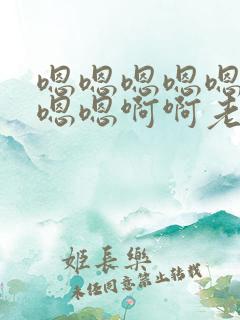 嗯嗯嗯嗯嗯
嗯嗯啊啊老
姬長樂
未经同意禁止转载